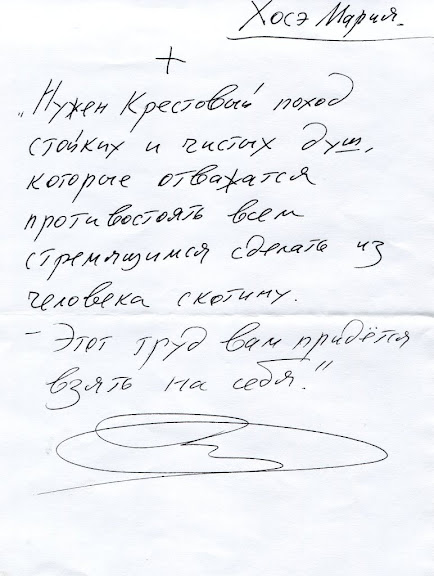 Хосэ Мария.
+
„Нужен Крестовый поход
стойких и чистых душ,
которые отважатся
противостоять всем
стремящимся сделать из
человека скотину.
– Этот труд вам придётся
взять на себя."